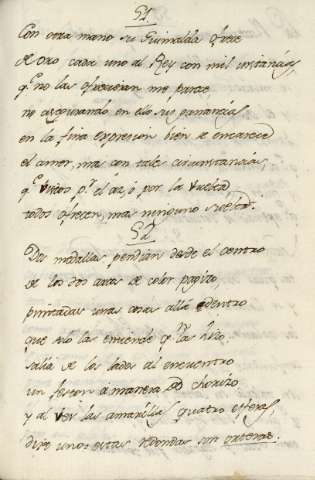 51
Con otra mano su Guirnalda ofrece
de oro cada uno al Rey con mil instancias,
q.e no las ofrecieran me parece
no asegurando en ello sus ganancias,
en la fina expresion bien se encarece
el amor, mas con tales circunstancias,
q.e visto p.r el as, ô por la vuelta
todos ofrecen, mas ninguno suelta.
52
Dos medallas pendian desde el centro
de los dos aras de color pagizo,
pintadas unas cosas allá adentro
que no las entiende q.n las hizo,
salia de los lados al encuentro
un feston a manera de chorizo
y al ver las amarillas quatro esferas,
dixe unos: estas redondas son